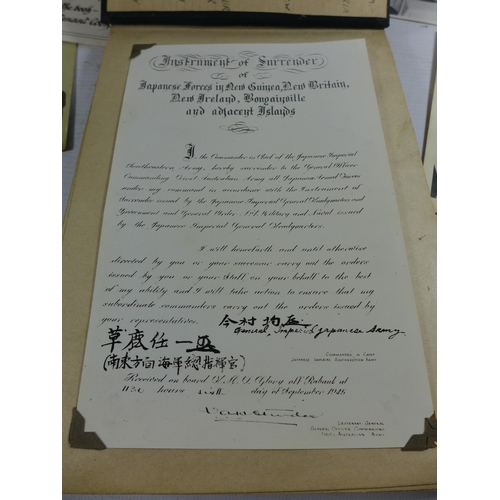 Instrument of Surrender
of
Japanese Forces in New Guinea, New Britain,
New Ireland, Bougainville
and adjacent Islands
I the Commander in Chief of the Japanese Imperial
Southeastern Army, hereby surrender to the General Officer
Commanding First Australian Army all Japanese Armed Forces
under my command in accordance with the Instrument of
Surrender issued by the Japanese Imperial General Headquarters and
Government and General Order No 1, Military and Naval issued
by the Japanese Imperial General Headquarters.
I will henceforth and until otherwise
directed by you or your successor carry out the orders
issued by you or your Staff on your behalf to the best
of my ability and I will take action to ensure that my
subordinate commanders carry out the orders issued by
your representatives.
今村均
General, Imperial Japanese Army
Commander in Chief
Japanese Imperial Southeastern Army
草鹿任一
(南東方面海軍総指揮官)
Received on board H.M.S. Glory off Rabaul at
hours day of September 1945
Lieutenant General
General Officer Commanding
First Australian Army